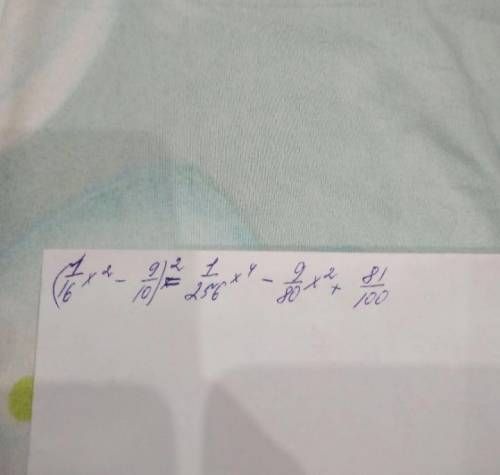 (1/16 x² - 9/10)² = 1/256 x⁴ - 9/80 x² + 81/100